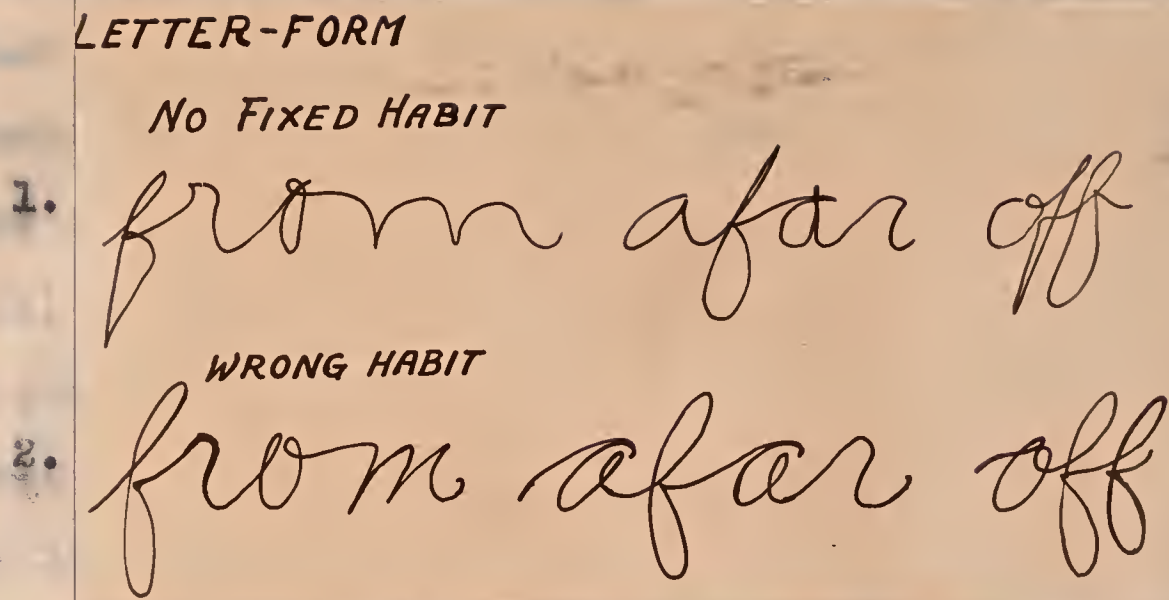 LETTER-FORM
NO FIXED HABIT
1. from afar off
WRONG HABIT
2. from afar off